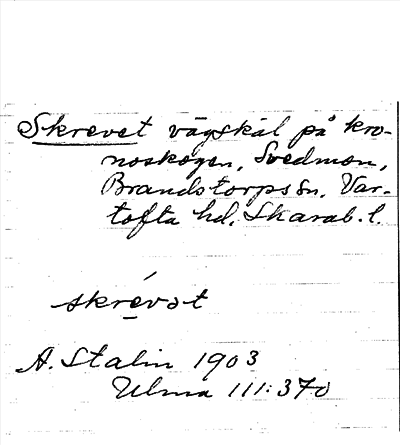 Skrevet vägskäl på kro-
noskogen, Svedmon,
Brandstorps sn. Var-
tofta hd. Skarab. l.
skrévət
A. Stalin 1903
Ulma 111:370